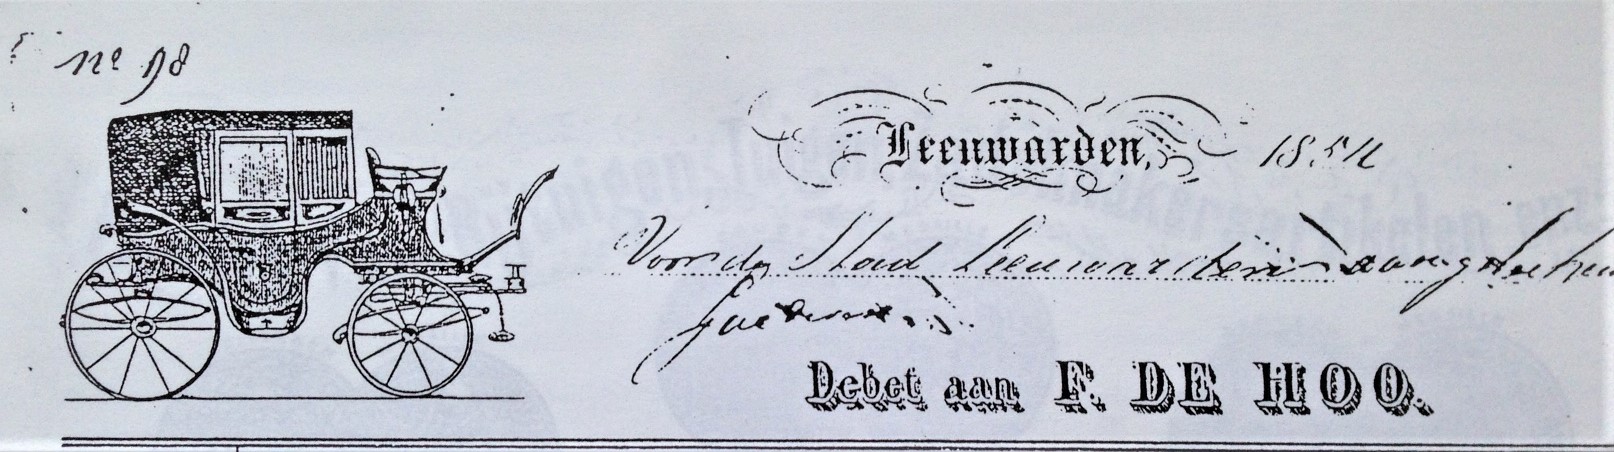 nº 98
Leeuwarden, 1854
Voor de Stad Leeuwarden
Debet aan F. DE HOO.